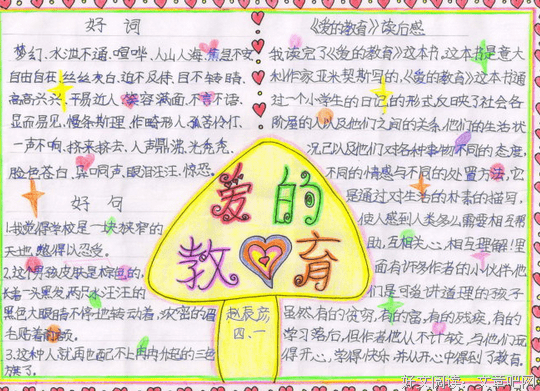 好词
梦幻、水泄不通、喧哗、人山人海、焦急不安
自由自在、丝丝灰白、迫不及待、目不转睛、
高高兴兴、平易近人、笑容满面、不言不语、
显而易见、慢条斯理、作畸形人、孤苦伶仃、
一声不响、挤来挤去、人声鼎沸、光秃秃、
脸色苍白、异口同声、眼泪汪汪、惊恐。
好句
1.我觉得学校是一块狭窄的
天地,憋得以忍受。
2.这个男孩皮肤是棕色的,
长着一头黑发,两只水汪汪的
黑色大眼睛不停地转动着,浓密的眉
毛贴着前额。
3.这种人就再也配不上冉冉升起的三色
旗了。
《爱的教育》读后感
我读完了《爱的教育》这本书。这本书是意大
利作家亚米契斯写的,《爱的教育》这本书通
过一个小学生的日记的形式,反映了社会各
阶层的人以及他们之间的关系,他们的生活状
况己以及他们对各种事物不同的态度,
不同的情感与不同的处置方法,它
是通过对生活的朴素的描写,
使人感到人类多么需要相互帮
助,互相关心,相互理解!里
面有许多作者的小伙伴,他
们是可爱讲道理的孩子
虽然,有的贫穷,有的富,有的残疾,有的
学习落后,但作者他从不计较,与他们玩
得开心,学得快乐,并从开心中得到了教育。
爱的
教育
赵辰
四、一
好文阅读,文章吧网